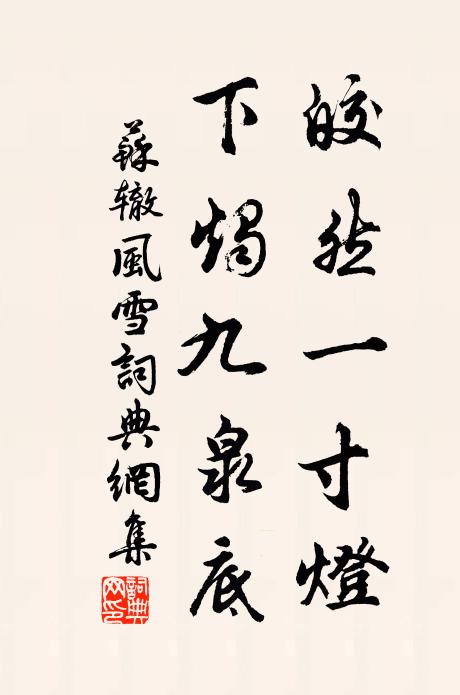 皎然一寸燈
下燭九泉底
蘇辙風雪詞典網集
詞典